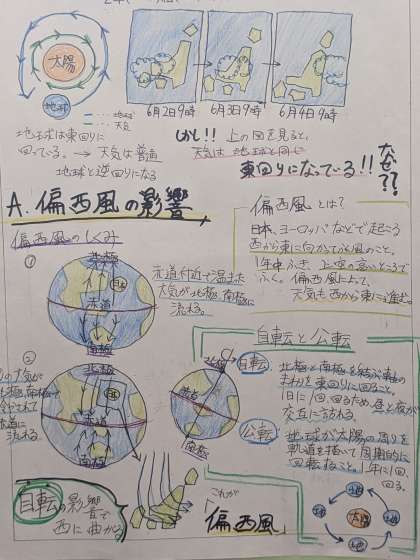 太陽
地球
… 地球
… 天気
6月2日9時
6月3日9時
6月4日9時
地球は東回りに
回っている。→ 天気は普通
地球と逆回りになる
しかし!! 上の図を見ると、
天気は地球と同じ
東回りになっている!!
なぜ??
A.偏西風の影響
偏西風のしくみ
偏西風とは?
日本、ヨーロッパなどで起こる
西から東に向かってふく風のこと。
1年中ふき、上空の高いところで
ふく。偏西風によって、
天気も西から東に進む。
①
北極
日本
赤道
南極
赤道付近で温まった
大気が北極、南極に
流れる。
②
北極
赤道
南極
大気が
北極、南極で
冷やされて
赤道に
流れる。
自転と公転
北極
赤道
南極
自転
北極と南極を結ぶ軸の
まわりを東回りに回ること。
1日に1回回るため、昼と夜が
交互に訪れる。
公転
地球が太陽の周りを
軌道を描いて周期的に
回転すること。1年に1回
回る。
自転の影響
で
西に曲がる
これが
「偏西風」
太陽
地
地
地
地